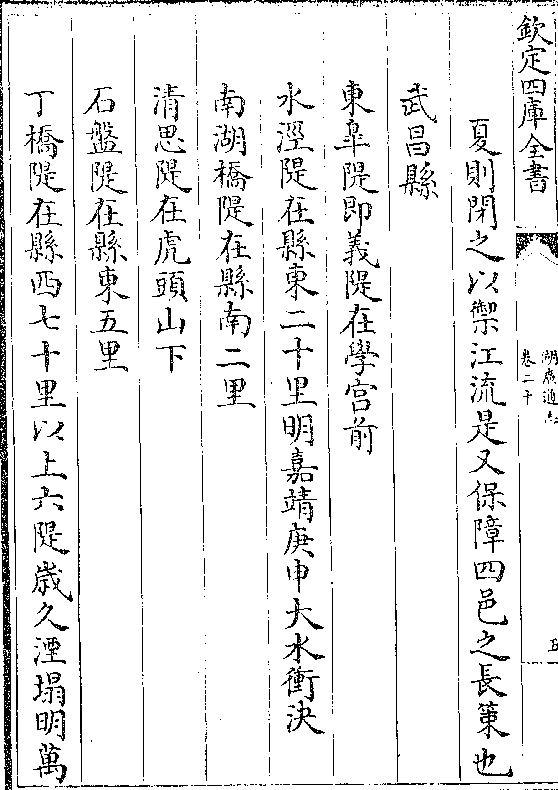 欽定四庫全書
湖廣通志
卷二十
五
夏則閉之以禦江流是又保障四邑之長策也
武昌縣
東臯隄即義隄在學宫前
水溼隄在縣東二十里明嘉靖庚申大水衝決
南湖橋隄在縣南二里
清思隄在虎頭山下
石盤隄在縣東五里
丁橋隄在縣西七十里以上六隄歲久湮塌明萬